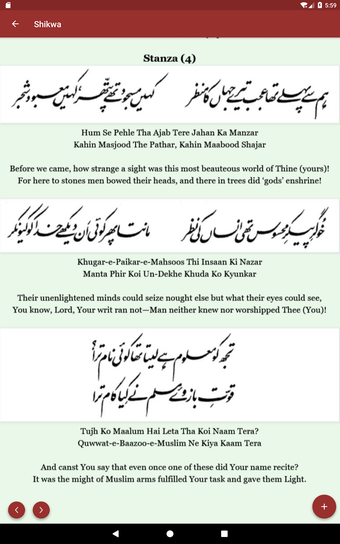 5:59
Shikwa
Stanza (4)
ہم سے پہلے تھا عجب تیرے جہاں کا منظر کہیں مسجود تھے پتھر، کہیں معبود شجر
Hum Se Pehle Tha Ajab Tere Jahan Ka Manzar
Kahin Masjood The Pathar, Kahin Maabood Shajar
Before we came, how strange a sight was this most beauteous world of Thine (yours)!
For here to stones men bowed their heads, and there in trees did ‘gods’ enshrine!
خوگرِ پیکرِ محسوس تھی انساں کی نظر مانتا پھر کوئی اَن دیکھے خدا کو کیونکر
Khugar-e-Paikar-e-Mahsoos Thi Insaan Ki Nazar
Manta Phir Koi Un-Dekhe Khuda Ko Kyunkar
Their unenlightened minds could seize nought else but what their eyes could see,
You know, Lord, Your writ ran not—Man neither knew nor worshipped Thee (You)!
تجھ کو معلوم ہے لیتا تھا کوئی نام ترا؟
قوتِ بازوئے مسلم نے کیا کام ترا
Tujh Ko Maalum Hai Leta Tha Koi Naam Tera?
Quwwat-e-Baazoo-e-Muslim Ne Kiya Kaam Tera
And canst You say that even once one of these did Your name recite?
It was the might of Muslim arms fulfilled Your task and gave them Light.